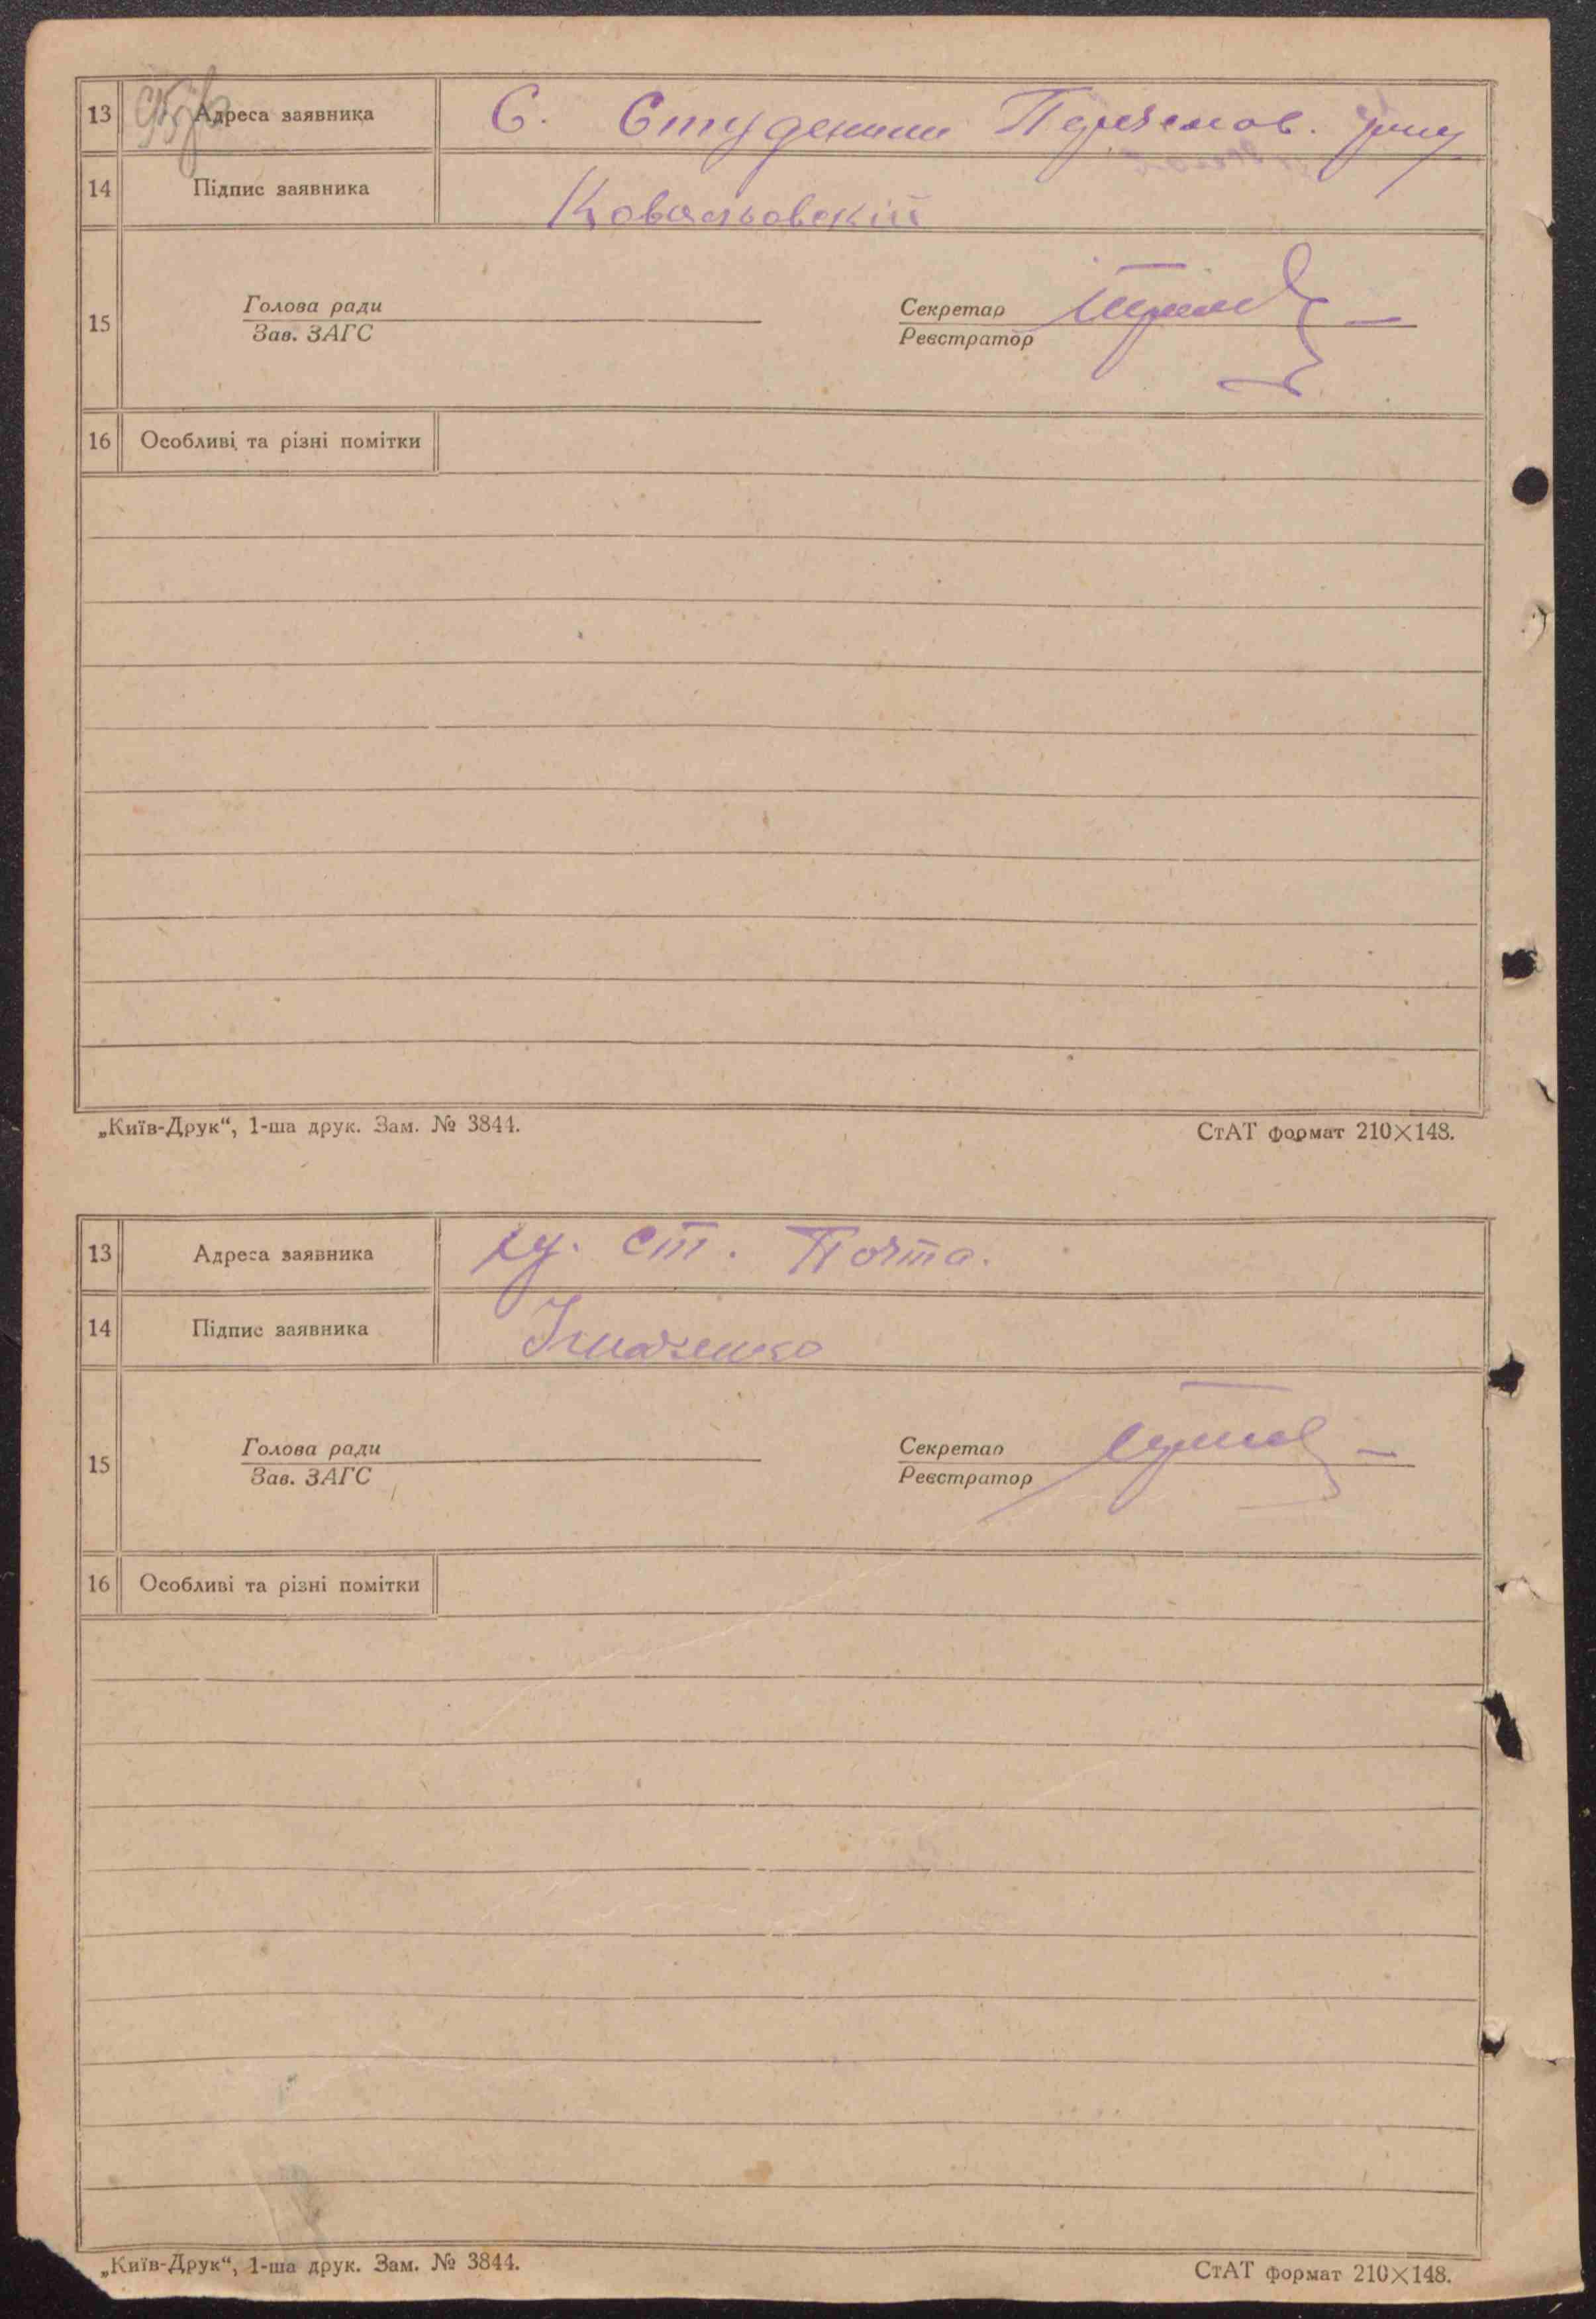 13 Адреса заявника С. Студеники
14 Підпис заявника Ковальовский
15 Голова ради Секретар
Зав. ЗАГС Реєстратор
16 Особливі та різні помітки
„Київ-Друк“, 1-ша друк. Зам. № 3844. СтАТ формат 210×148.
13 Адреса заявника ст. Почта.
14 Підпис заявника
15 Голова ради Секретар
Зав. ЗАГС Реєстратор
16 Особливі та різні помітки
„Київ-Друк“, 1-ша друк. Зам. № 3844. СтАТ формат 210×148.